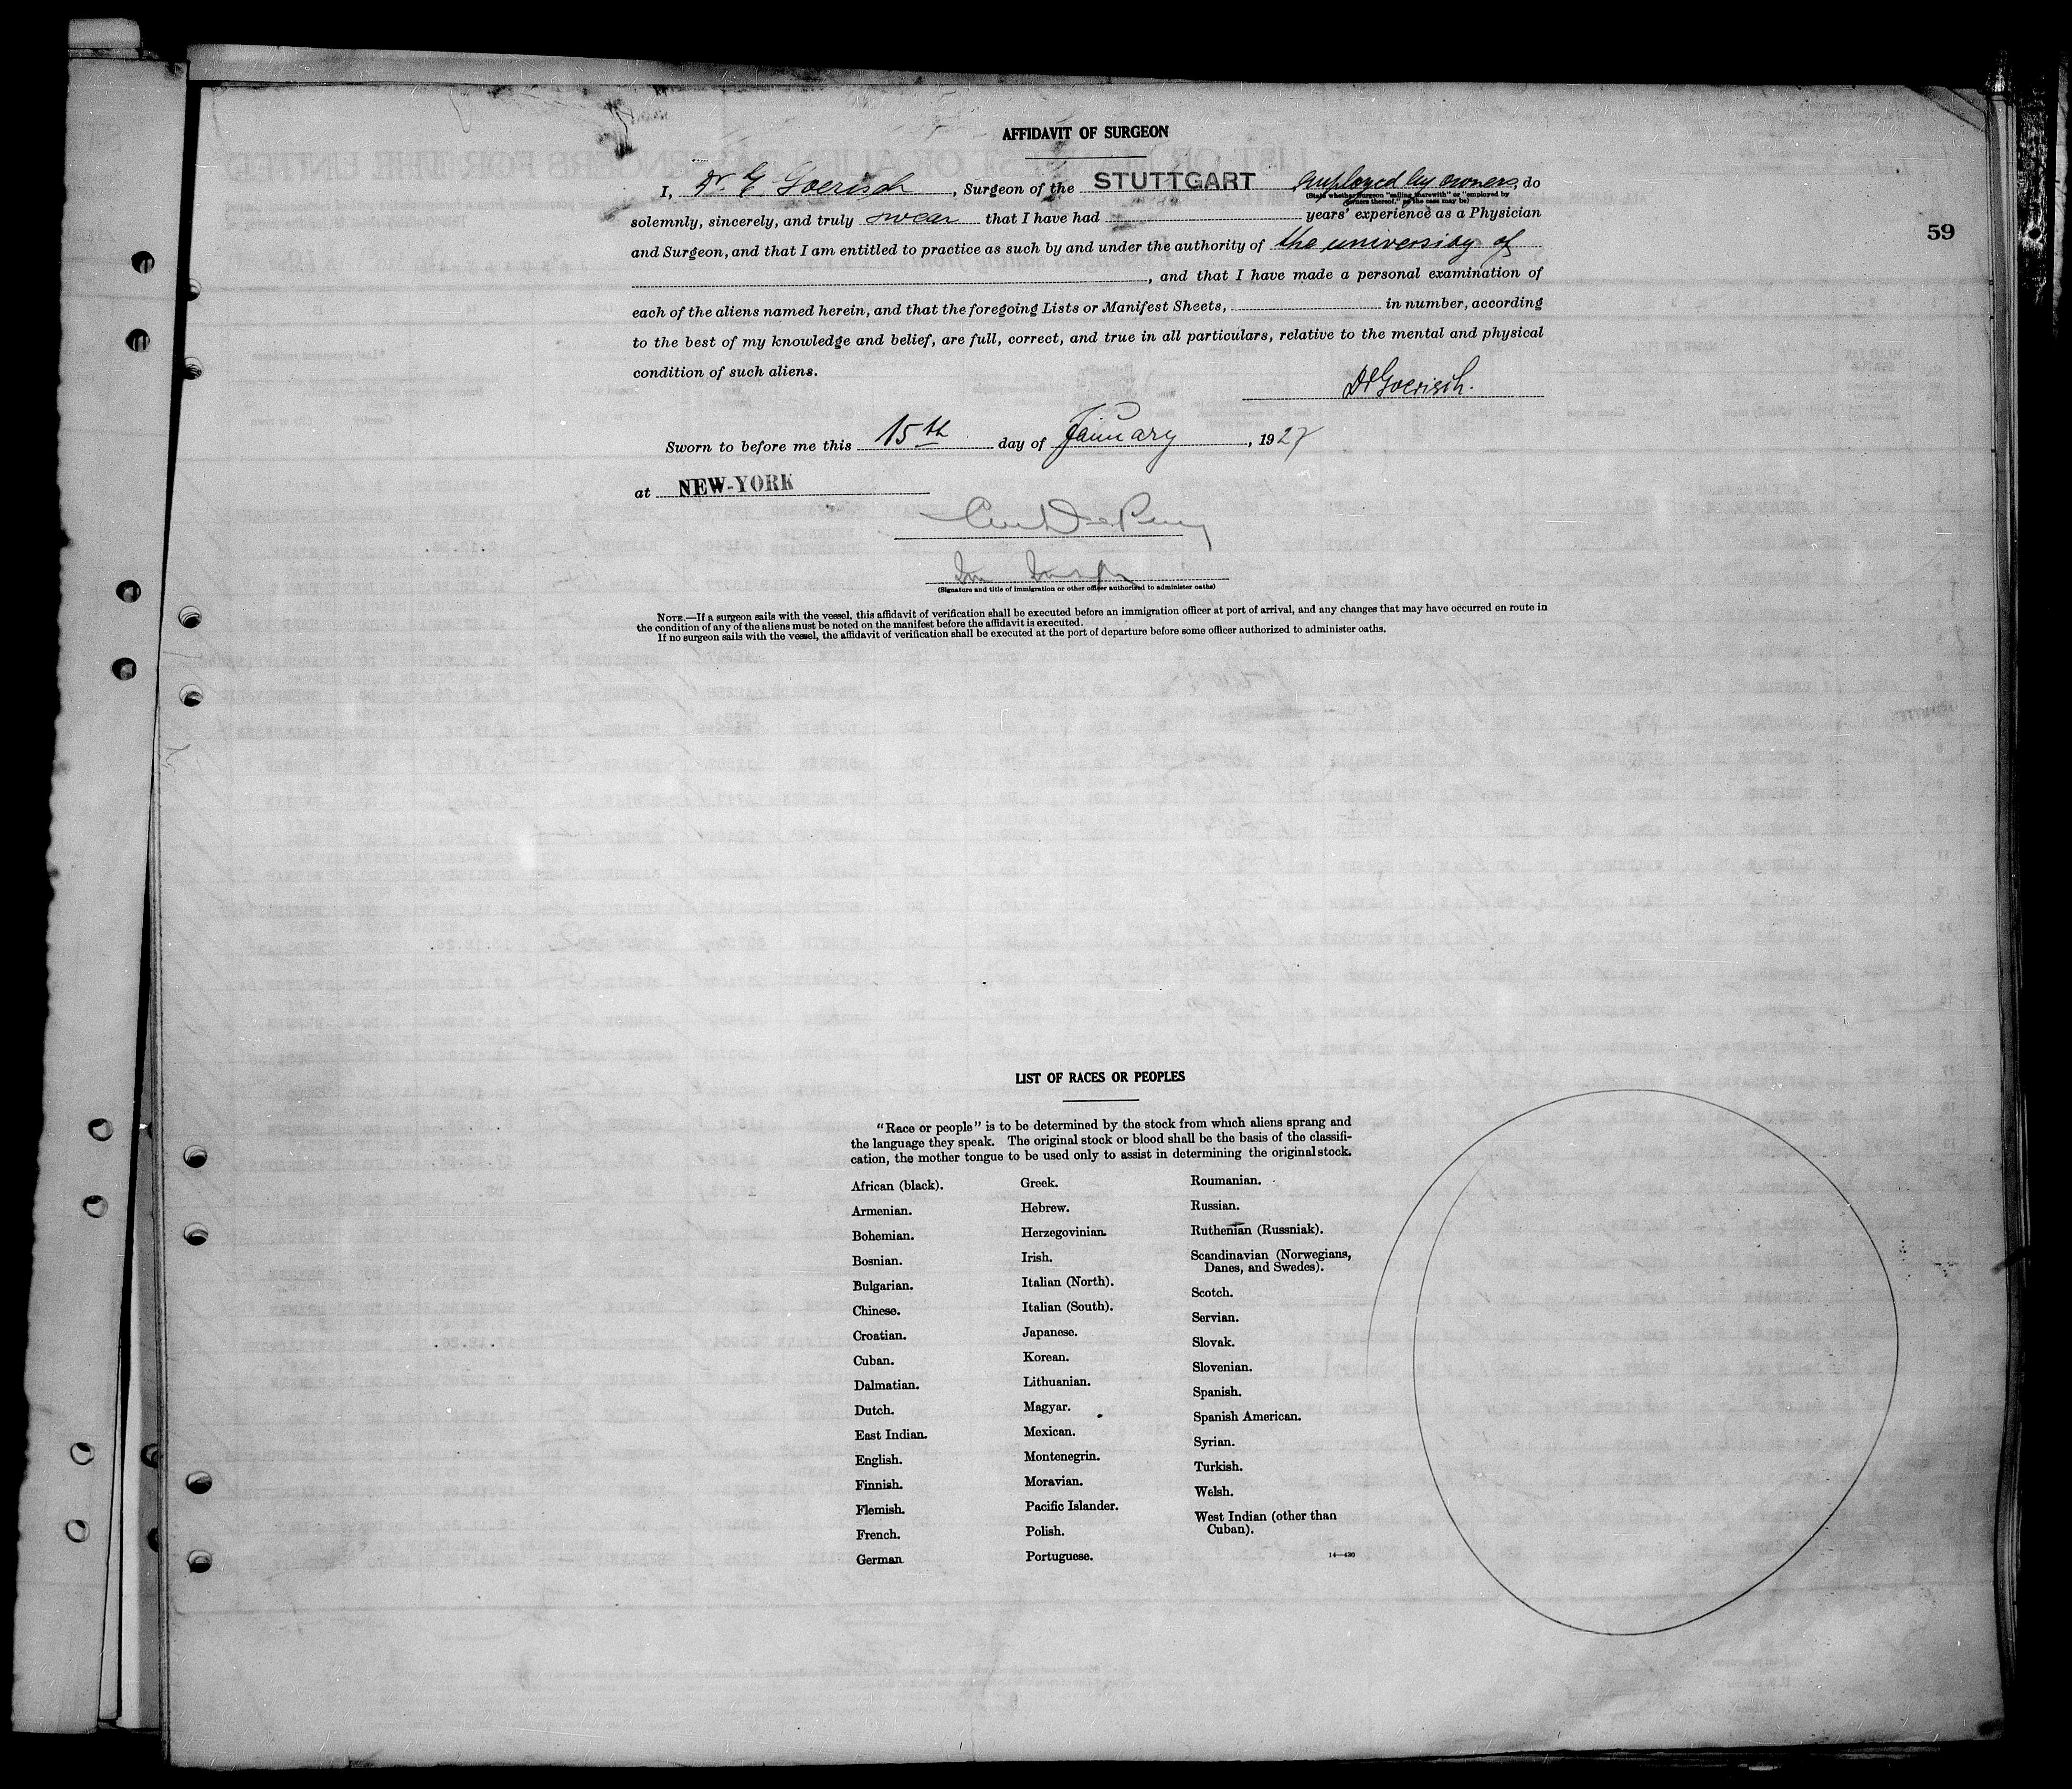 AFFIDAVIT OF SURGEON
I, Dr. E. Goerisch, Surgeon of the STUTTGART employed by owners, do
(State whether surgeon "sailing therewith" or "employed by
owners thereof," as the case may be)
solemnly, sincerely, and truly swear that I have had years' experience as a Physician
59
and Surgeon, and that I am entitled to practice as such by and under the authority of the university of
, and that I have made a personal examination of
each of the aliens named herein, and that the foregoing Lists or Manifest Sheets, in number, according
to the best of my knowledge and belief, are full, correct, and true in all particulars, relative to the mental and physical
condition of such aliens.
Dr Goerisch.
Sworn to before me this 15th day of January, 1927
at NEW-YORK
(Signature and title of immigration or other officer authorized to administer oaths)
NOTE.—If a surgeon sails with the vessel, this affidavit of verification shall be executed before an immigration officer at port of arrival, and any changes that may have occurred en route in
the condition of any of the aliens must be noted on the manifest before the affidavit is executed.
If no surgeon sails with the vessel, the affidavit of verification shall be executed at the port of departure before some officer authorized to administer oaths.
LIST OF RACES OR PEOPLES
"Race or people" is to be determined by the stock from which aliens sprang and
the language they speak. The original stock or blood shall be the basis of the classifi-
cation, the mother tongue to be used only to assist in determining the original stock.
African (black).
Armenian.
Bohemian.
Bosnian.
Bulgarian.
Chinese.
Croatian.
Cuban.
Dalmatian.
Dutch.
East Indian.
English.
Finnish.
Flemish.
French.
German
Greek.
Hebrew.
Herzegovinian.
Irish.
Italian (North).
Italian (South).
Japanese.
Korean.
Lithuanian.
Magyar.
Mexican.
Montenegrin.
Moravian.
Pacific Islander.
Polish.
Portuguese.
Roumanian.
Russian.
Ruthenian (Russniak).
Scandinavian (Norwegians,
Danes, and Swedes).
Scotch.
Servian.
Slovak.
Slovenian.
Spanish.
Spanish American.
Syrian.
Turkish.
Welsh.
West Indian (other than
Cuban).
14—430